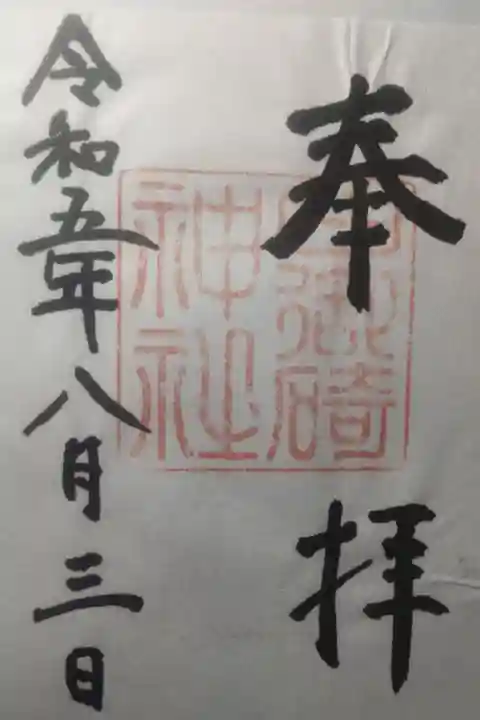 奉拝
日御碕
神社
令和五年八月三日